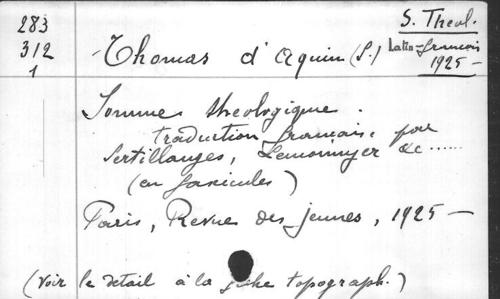 283
312
1
S. Theol.
Latin-francais
1925 -
Thomas d'Aquin (S.)
Somme theologique.
traduction francaise par
Sertillanges, Lemonnyer &c ......
(en fascicules)
Paris, Revue des jeunes, 1925 -
(voir le detail à la fiche topograph.)